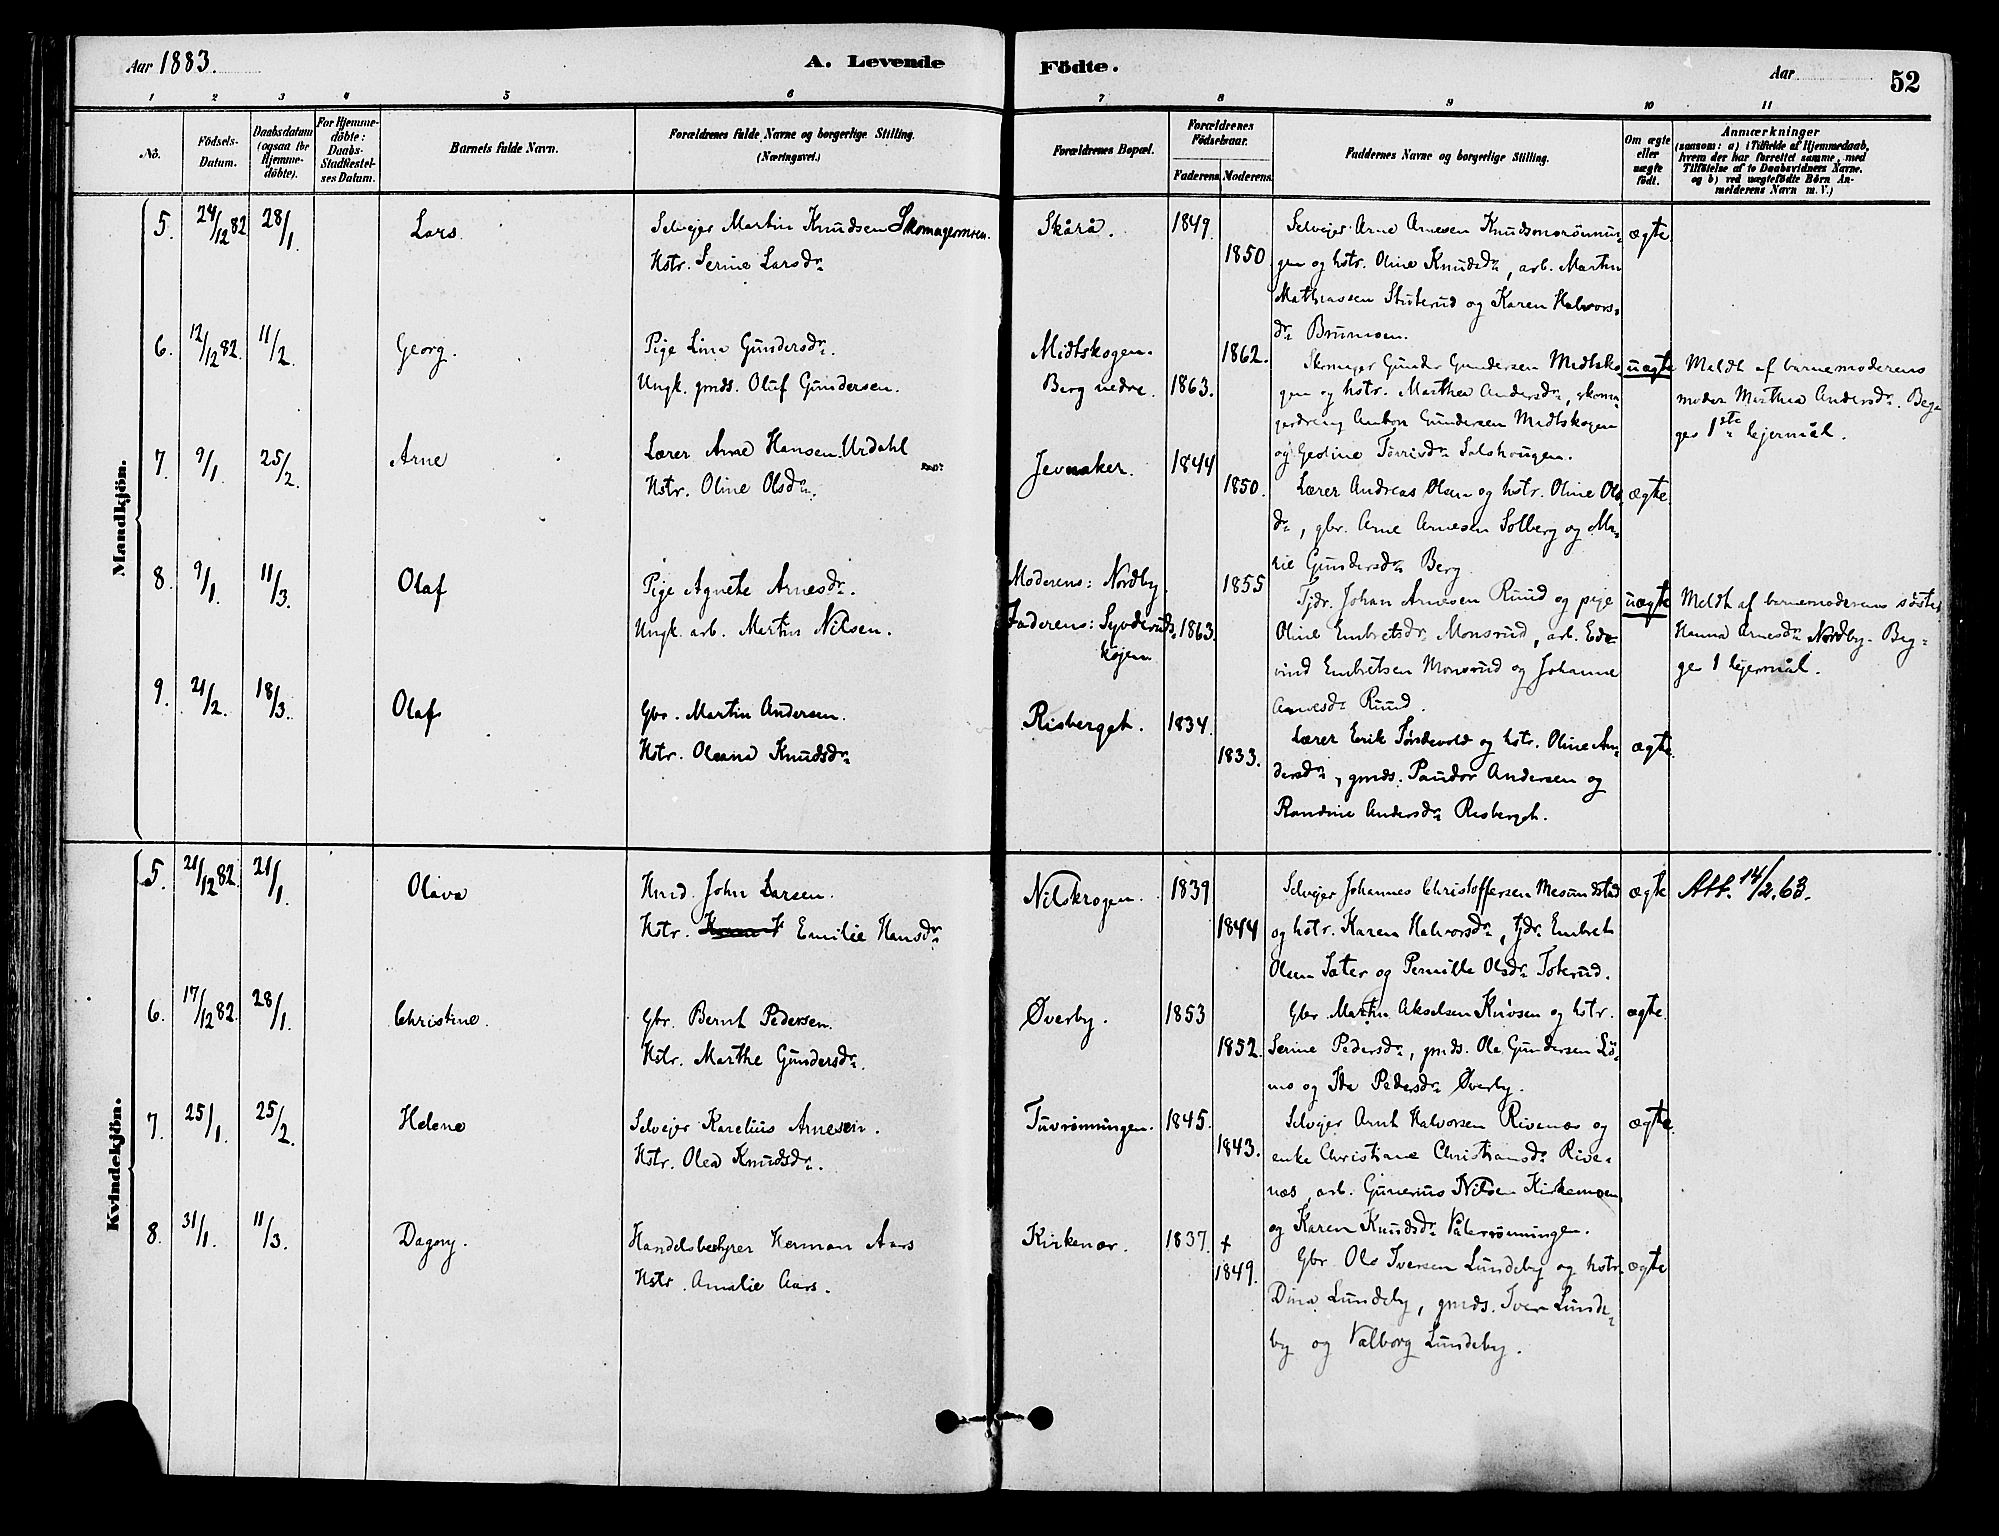 Aar 1883. A. Levende Födte. Aar 52
1 2 3 4 5 6 7 8 9 10 11
No.
Födsels-
Datum.
Daabsdatum
(ogsaa for
Hjemme-
döbte).
For Hjemme-
döbte:
Daabs-
Stadfæstel-
ses Datum.
Barnets fulde Navn.
Forældrenes fulde Navne og borgerlige Stilling.
(Næringsvei.)
Forældrenes Bopæl.
Forældrenes
Födselsaar.
Faderens. Moderens.
Faddernes Navne og borgerlige Stilling.
Om ægte
eller
uægte
födt.
Anmærkninger
(saasom: a) i Tilfælde af Hjemmedaab,
hvem der har forrettet samme, med
Tilföielse af to Daabsvidners Navne.
og b) ved uægtefödte Börn An-
melderens Navn m. V.)
Mandkjön.
5. 24/12 82 28/1. Lars.
Selvejer Martin Knudsen Skomagermoen.
Hstr. Serine Larsdr.
Skårå. 1849.
1850
Selvejer Arne Arnesen Knudsmorönnin-
gen og hstr. Oline Knudsdr, arb. Martin
Mathiassen Stuterud og Karen Halvors-
dr Brumoen.
ægte.
6. 12/12 82. 11/2. Georg.
Pige Lina Gundersdr.
Ungk. gmds. Oluf Gundersen.
Midtskogen.
Berg nedre. 1863.
1862.
Skomager Gunder Gundersen Midtsko-
gen og hstr. Marthea Andersdr, skoma-
gerdreng Anton Gundersen Midtskogen
og Gedine Torrisdr Salshougen.
uægte
Meldt af barnemoderens
moder Marthea Andersdr. Beg-
ges 1ste lejermål.
7. 9/1. 25/2. Arne
Lærer Arne Hansen Urdahl
Hstr. Oline Olsdr.
Jevnaker. 1844
1850.
Lærer Andreas Olsen og hstr. Oline Ols-
dr, gbr. Arne Arnesen Solberg og Ma-
rie Gundersdr Berg.
ægte.
8. 9/1. 11/3. Olaf
Pige Agnete Arnesdr.
Ungk. arb. Martin Nilsen.
Moderens: Nordby.
Faderens: Syvderuds- 1863.
kojen
1855
Tjdr. Johan Arnesen Ruud og pige
Oline Embretsdr Monsrud, arb. Ede-
vind Embretsen Monsrud og Johanne
Arnesdr Ruud.
uægte
Meldt af barnemoderens søster
Hanna Arnesdr Nordby. Beg-
ges 1 lejermål.
9. 21/2. 18/3. Olaf
Gbr. Martin Andersen.
Hstr. Oleana Knudsdr.
Risberget. 1834.
1833.
Lærer Erik Torsdevold og hstr. Oline An-
dersdr, gmds. Pauder Andersen og
Randine Andersdr Risberget.
ægte.
Kvindekjön.
5. 21/12 82. 21/1. Olava
Hmd. John Larsen.
Hstr. Emilie Hansdr
Nilskrogen. 1839
1844
Selvejer Johannes Christoffersen Mesundstad
og hstr. Karen Halvorsdr, tjdr. Embret
Olsen Sater og Pernille Olsdr Tokerud.
ægte
Att. 14/2. 63.
6. 17/12 82. 28/1. Christine.
Gbr. Bernt Pedersen.
Hstr. Marthe Gundersdr.
Øverby. 1853
1852.
Gbr. Martin Akselsen Kuøsen og hstr.
Serine Pedersdr, gmds. Ole Gundersen Lö-
mo og Ida Pedersdr Øverby.
ægte.
7. 25/1. 25/2. Helene
Selvejer Karelius Arnesen.
Hstr. Olea Knudsdr.
Tuvrønningen. 1845.
1843.
Selvejer Arnt Halvorsen Rivenæs og
enke Christiane Christiansdr Rive-
næs, arb. Gunerius Nilsen Kirkemoen,
og Karen Knudsdr Válerrønningen.
ægte.
8. 31/1. 11/3. Dagny.
Handelsbestyrer Herman Aars
Hstr. Amalie Aars.
Kirkenær. 1837.
+
1849.
Gbr. Ole Iversen Lundeby og hstr.
Dina Lundeby, gmds. Iver Lunde-
by og Valborg Lundeby.
ægte